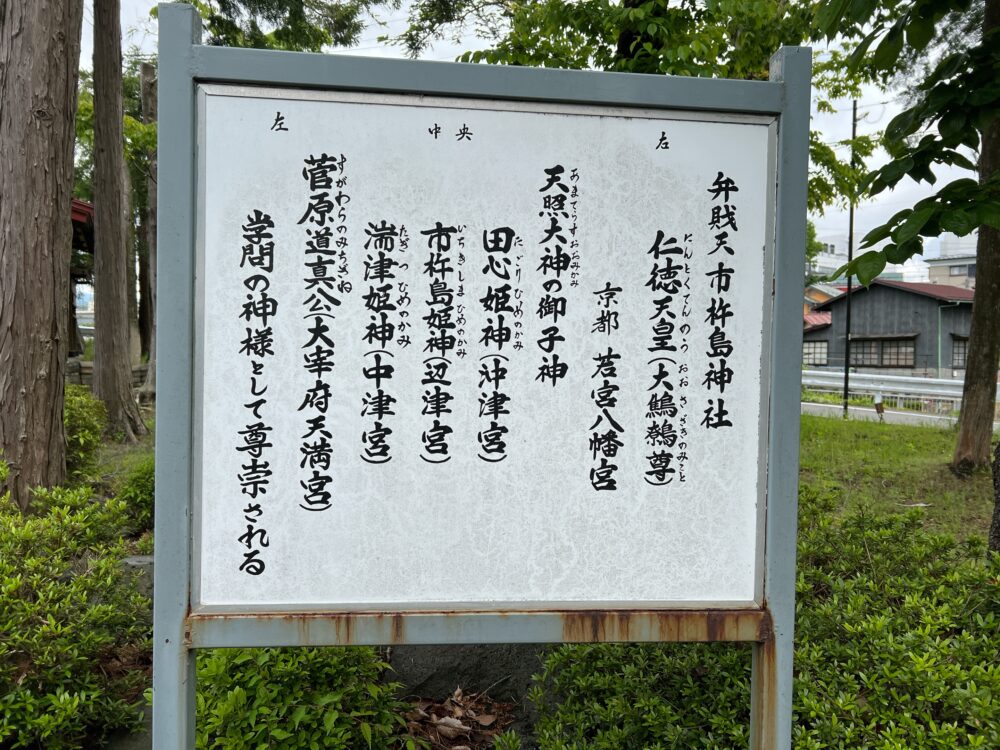 左
中央
左
弁財天 市杵島神社
にんとくてんのう おおさざきのみこと
仁徳天皇(大鷦鷯尊)
京都 若宮八幡宮
あまてらすおおみかみ
天照大神の御子神
たごりひめのかみ
田心姫神(沖津宮)
いちきしまひめのかみ
市杵島姫神(辺津宮)
たぎつひめのかみ
湍津姫神(中津宮)
すがわらのみちざね
菅原道真公(大宰府天満宮)
学問の神様として尊崇される